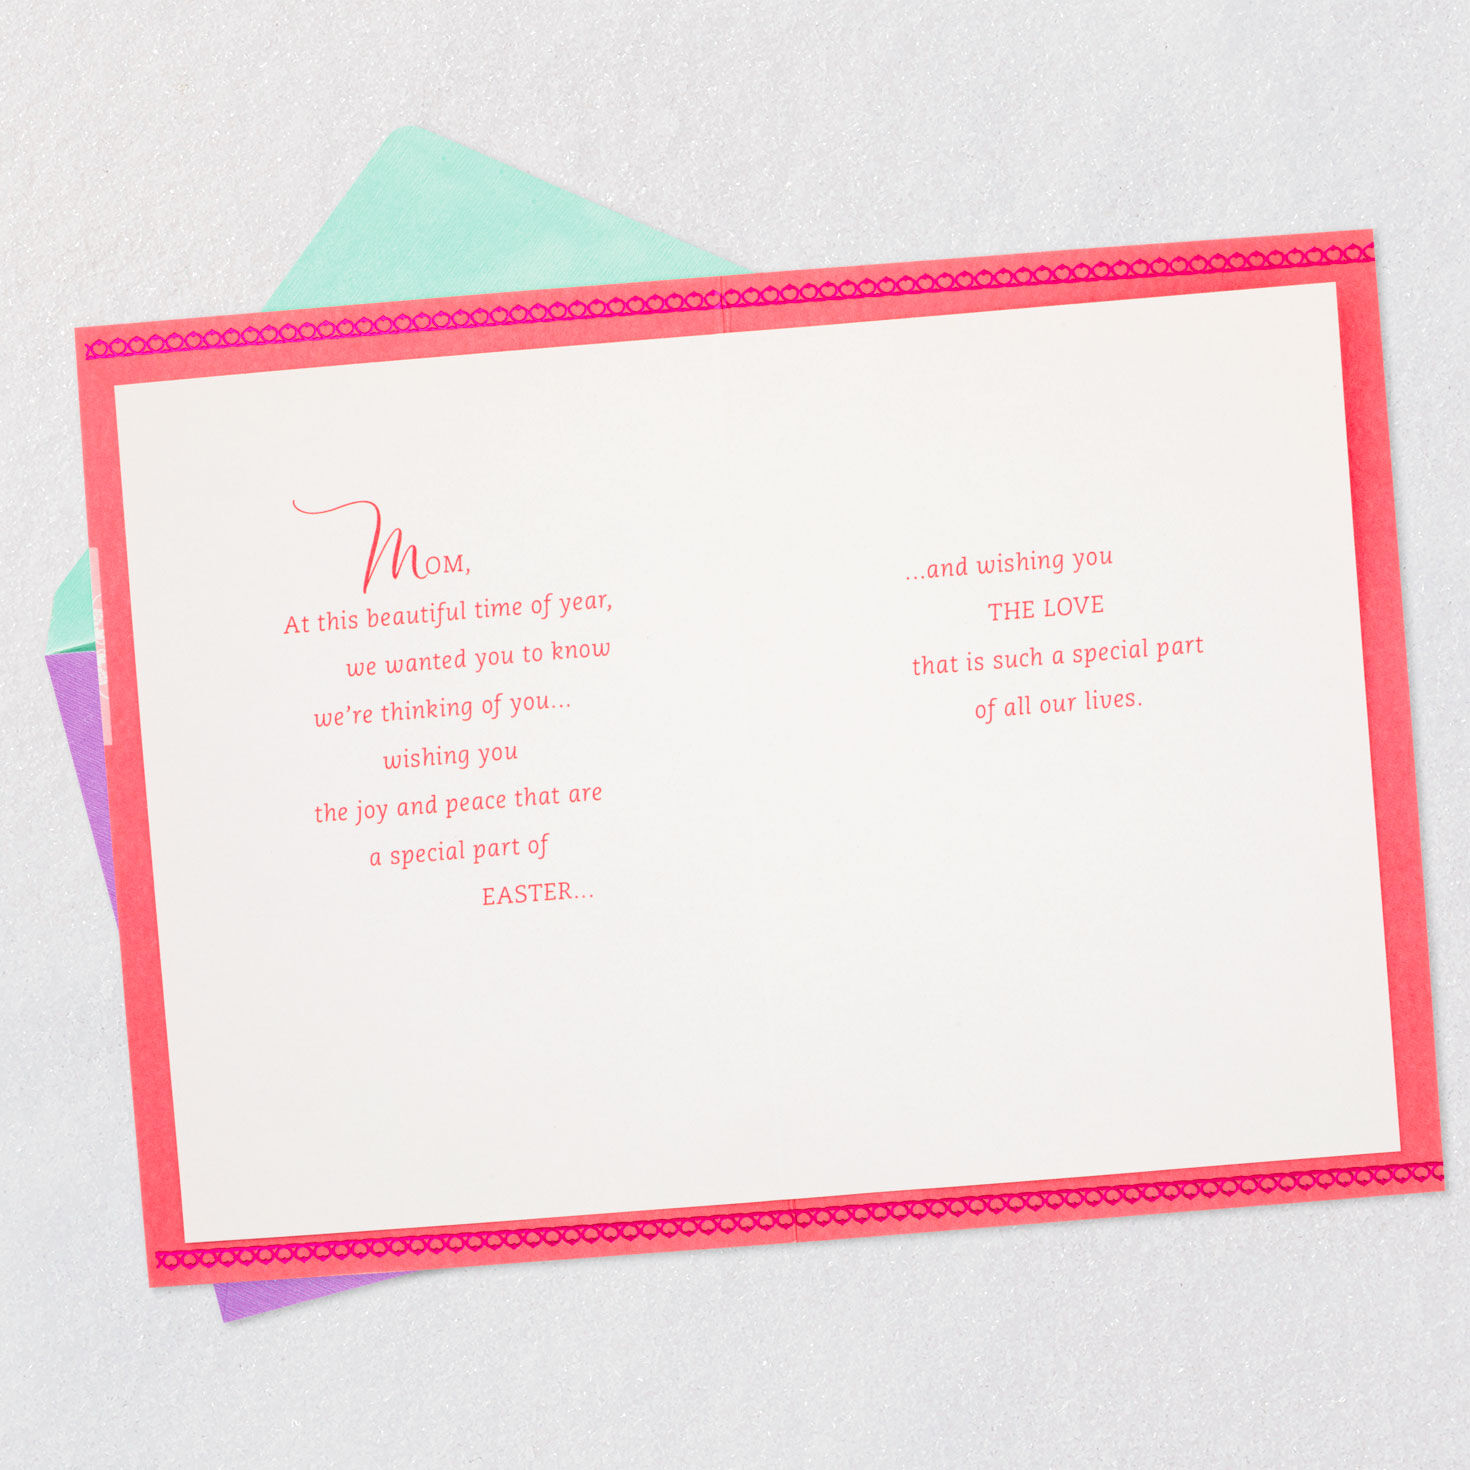 Mom,
At this beautiful time of year,
we wanted you to know
we're thinking of you...
wishing you
the joy and peace that are
a special part of
EASTER...
...and wishing you
THE LOVE
that is such a special part
of all our lives.